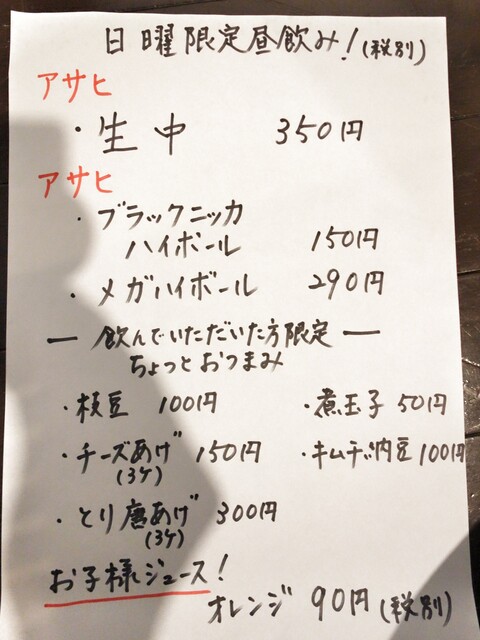 日曜限定昼飲み！(税別)
アサヒ
・生中 350円
アサヒ
・ブラックニッカ
ハイボール 150円
・メガハイボール 290円
— 飲んでいただいた方限定 —
ちょっとおつまみ
・枝豆 100円 ・煮玉子 50円
・チーズあげ 150円 ・キムチ納豆 100円
(3ケ)
・とり唐あげ 300円
(3ケ)
お子様ジュース！
オレンジ 90円 (税別)